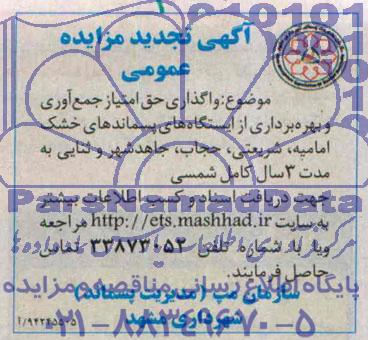 آگهی تجدید مزایده
عمومی
موضوع: واگذاری حق امتیاز جمع‌آوری
و بهره‌برداری از ایستگاه‌های پسماندهای خشک
امامیه، شریعتی، حجاب، جاهدشهر و ثنایی به
مدت ۳ سال کامل شمسی
جهت دریافت اسناد و کسب اطلاعات بیشتر
به سایت http://ets.mashhad.ir مراجعه
ویا به شماره تلفن ۳۳۸۷۳۰۵۲ تماس
حاصل فرمایند.
پایگاه اطلاع رسانی مناقصه و مزایده
سازمان مپ (مدیریت پسماند)
شهرداری مشهد
۰۲۱-۸۸۳۴۹۶۷۰-۵